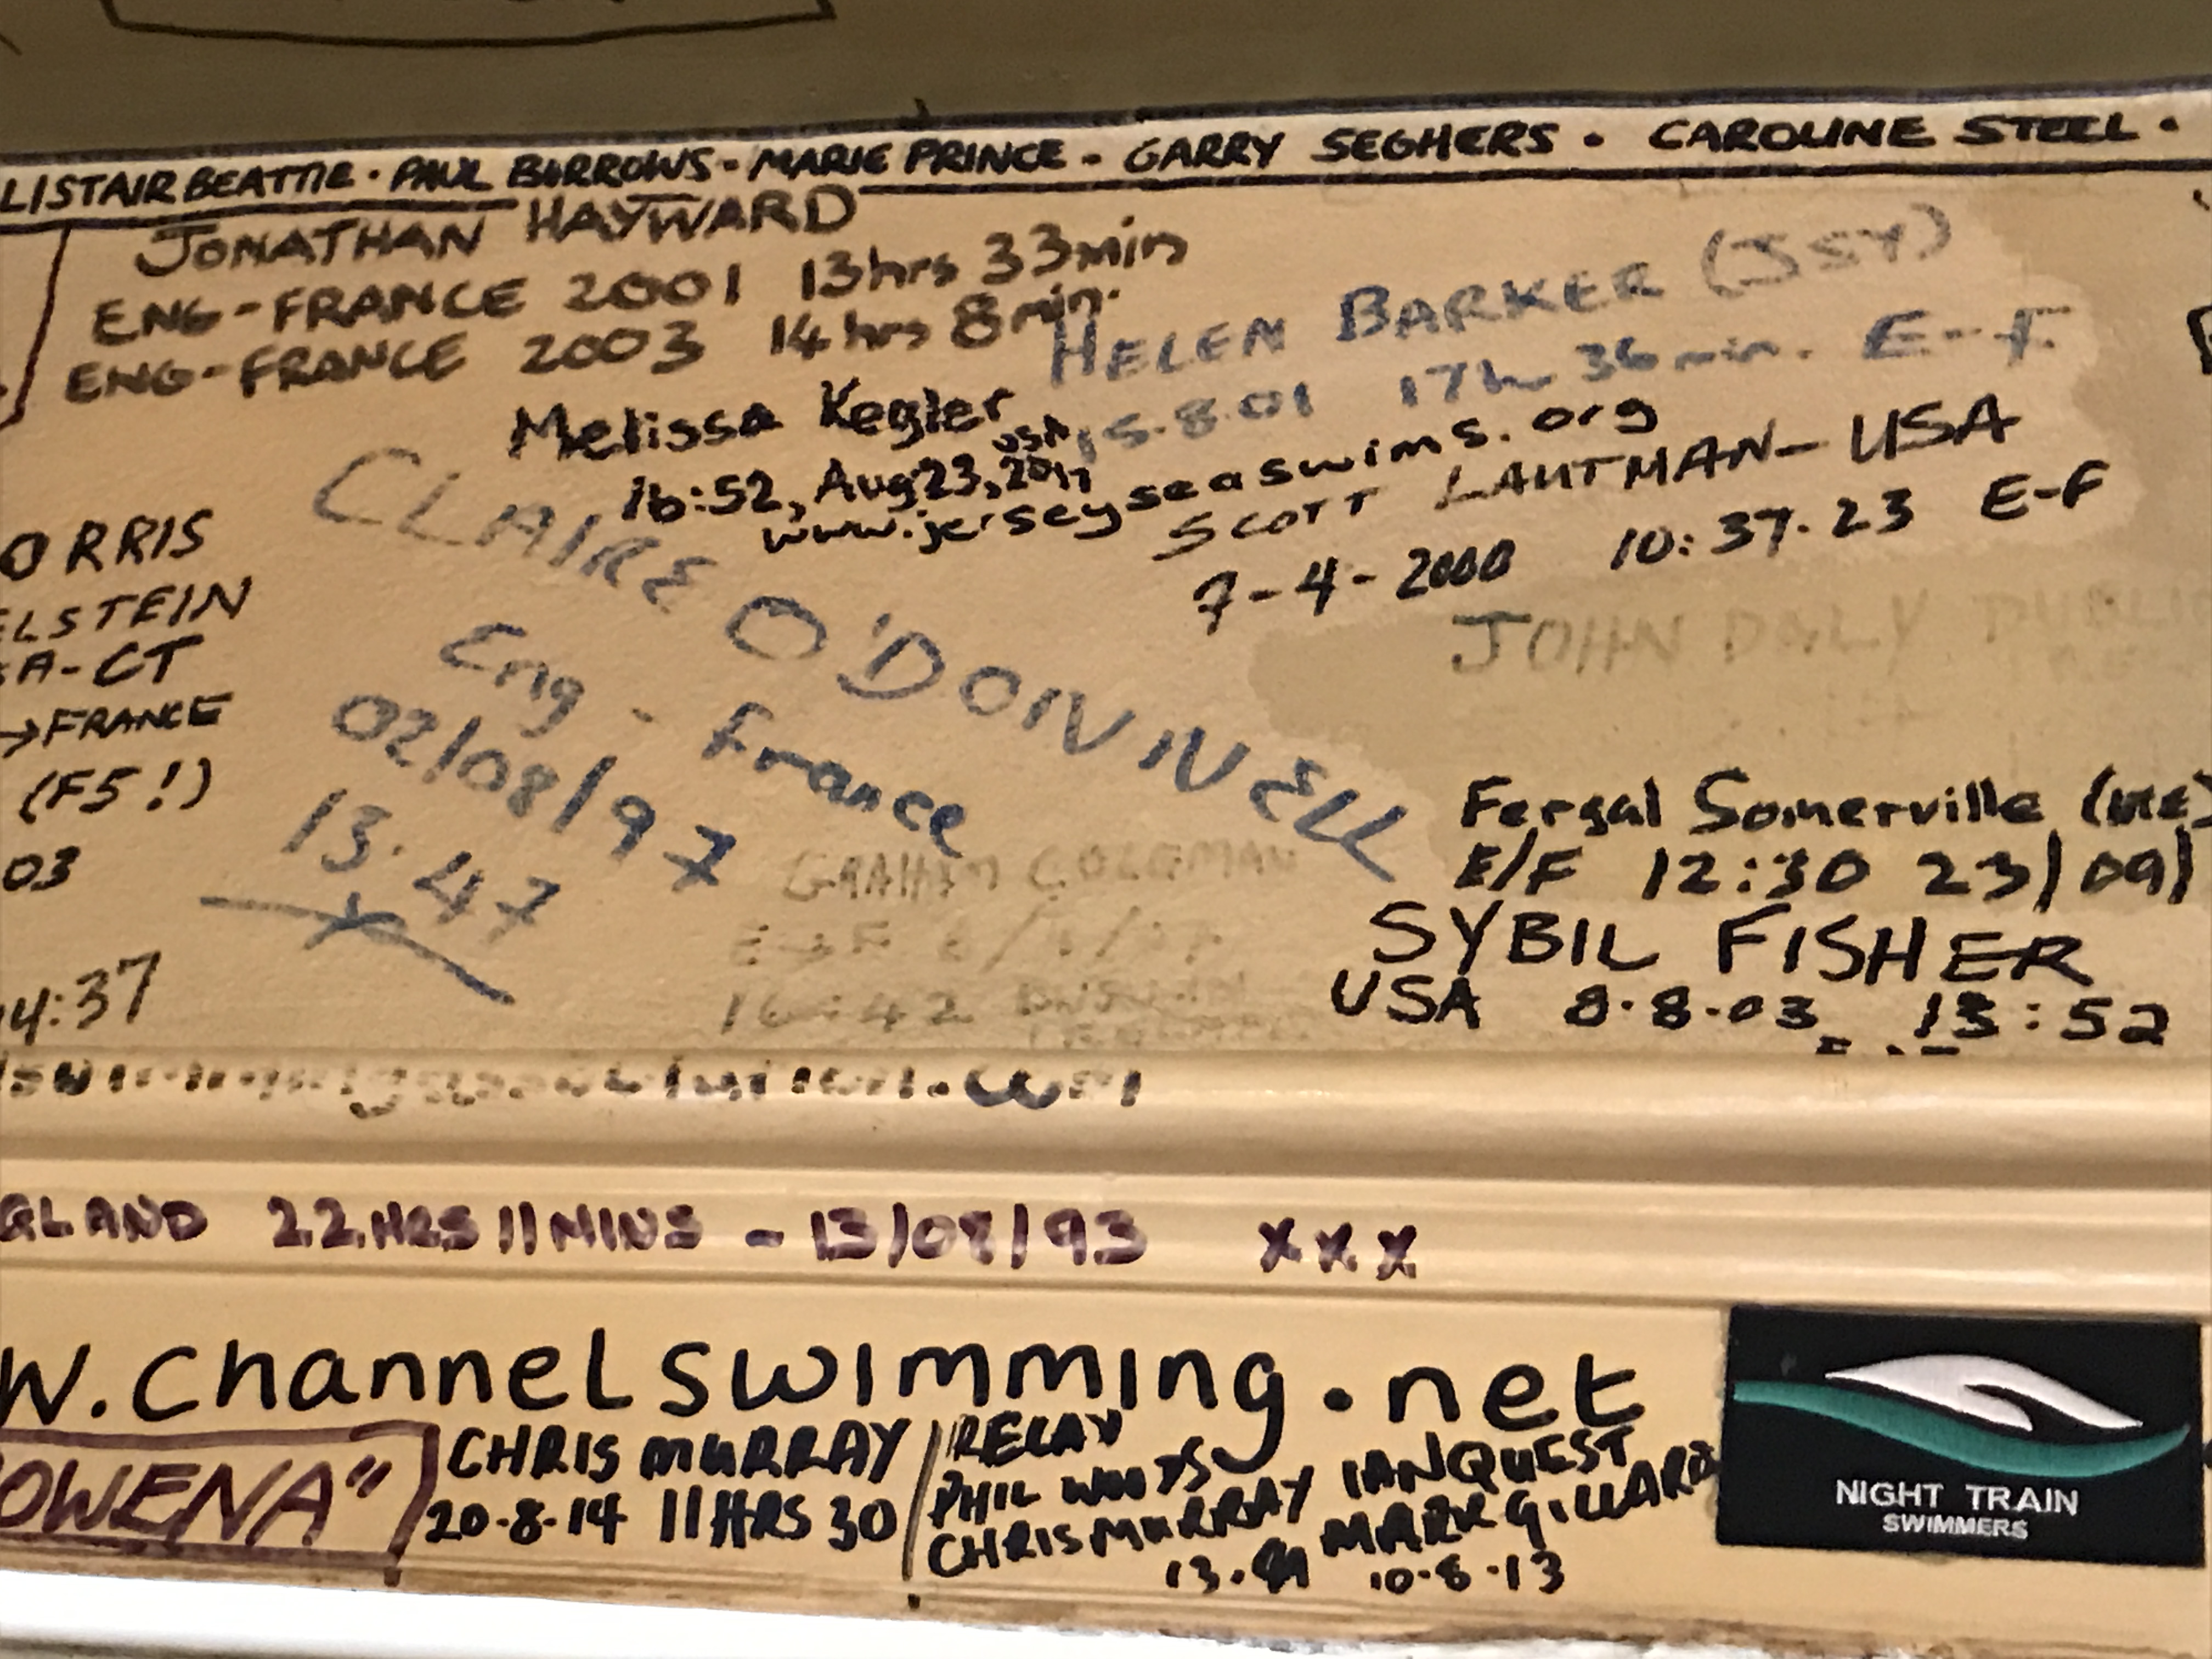 LISTAIR BEATTIE · PAUL BORROWS - MARIE PRINCE - GARRY SEGHERS · CAROLINE STEEL ·
JONATHAN HAYWARD
ENG-FRANCE 2001 13hrs 33min
ENG-FRANCE 2003 14hrs 8min.
HELEN BARKER (JSY)
15.8.01 17hr 36min. E-F
Melissa Kegler
USA
16:52, Aug 23, 2011
www.jerseyseaswims.org
SCOTT LAUTMAN - USA
7-4-2000 10:37.23 E-F
ORRIS
ELSTEIN
A-CT
→FRANCE
(F5!)
03
4:37
CLAIRE O'DONNELL
Eng - France
02/08/97
13.47
X
JOHN DALY DUBLIN
GRAHAM COLEMAN
E→F
16:42
Fergal Somerville (IRE)
E/F 12:30 23/09/
SYBIL FISHER
USA 8.8.03 13:52
GLAND 22HRS 11MINS - 13/08/93 XXX
W.channelswimming.net
OWENA"
CHRIS MURRAY
20-8-14 11HRS 30
RELAY
PHIL WOODS IAN QUEST
CHRIS MURRAY MARK GILLARD
10-8-13
NIGHT TRAIN
SWIMMERS